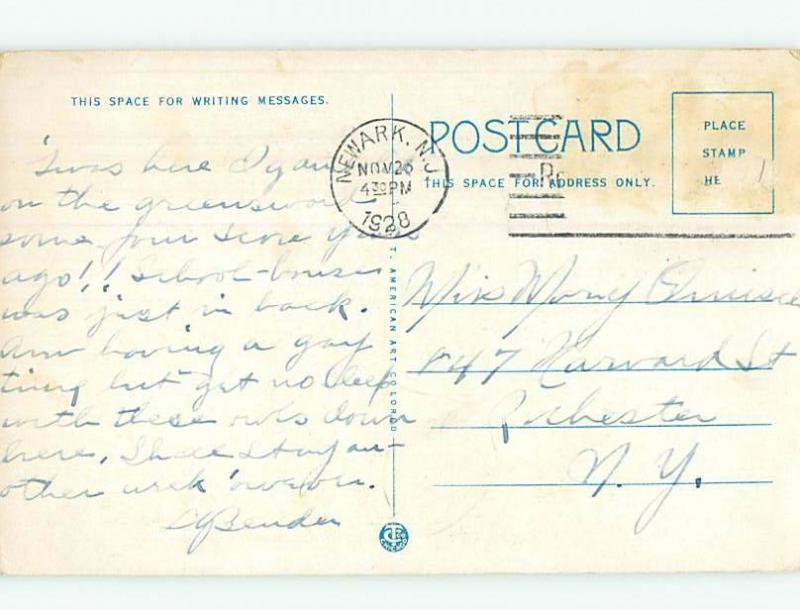 THIS SPACE FOR WRITING MESSAGES.
'Twas here I
on the greensward
some four score years
ago!! School-house
was just in back.
Am having a gay
time but get no sleep
with these owls down
here. Shall stay an-
other week 'owever.
Bender
NEWARK, N.J.
NOV 26
4 30 PM
1928
POSTCARD
THIS SPACE FOR ADDRESS ONLY.
PLACE
STAMP
HE
Miss Mary
47 Harvard St
Rochester
N. Y.
T. AMERICAN ART COLORED
CHICAGO